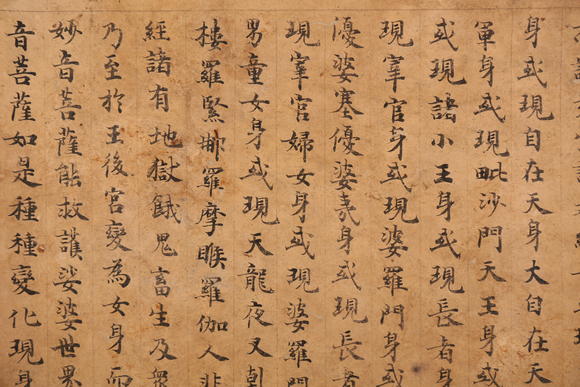 身或現自在天身大自在天
軍身或現毗沙門天王身或
或現諸小王身或現長者身
現宰官身或現婆羅門身或
優婆塞優婆夷身或現長者
現宰官婦女身或現婆羅門
男童女身或現天龍夜叉乹
樓羅緊那羅摩睺羅伽人非
經諸有地獄餓鬼畜生及衆
乃至於王後宮變為女身而
妙音菩薩能救護娑婆世界
音菩薩如是種種變化現身